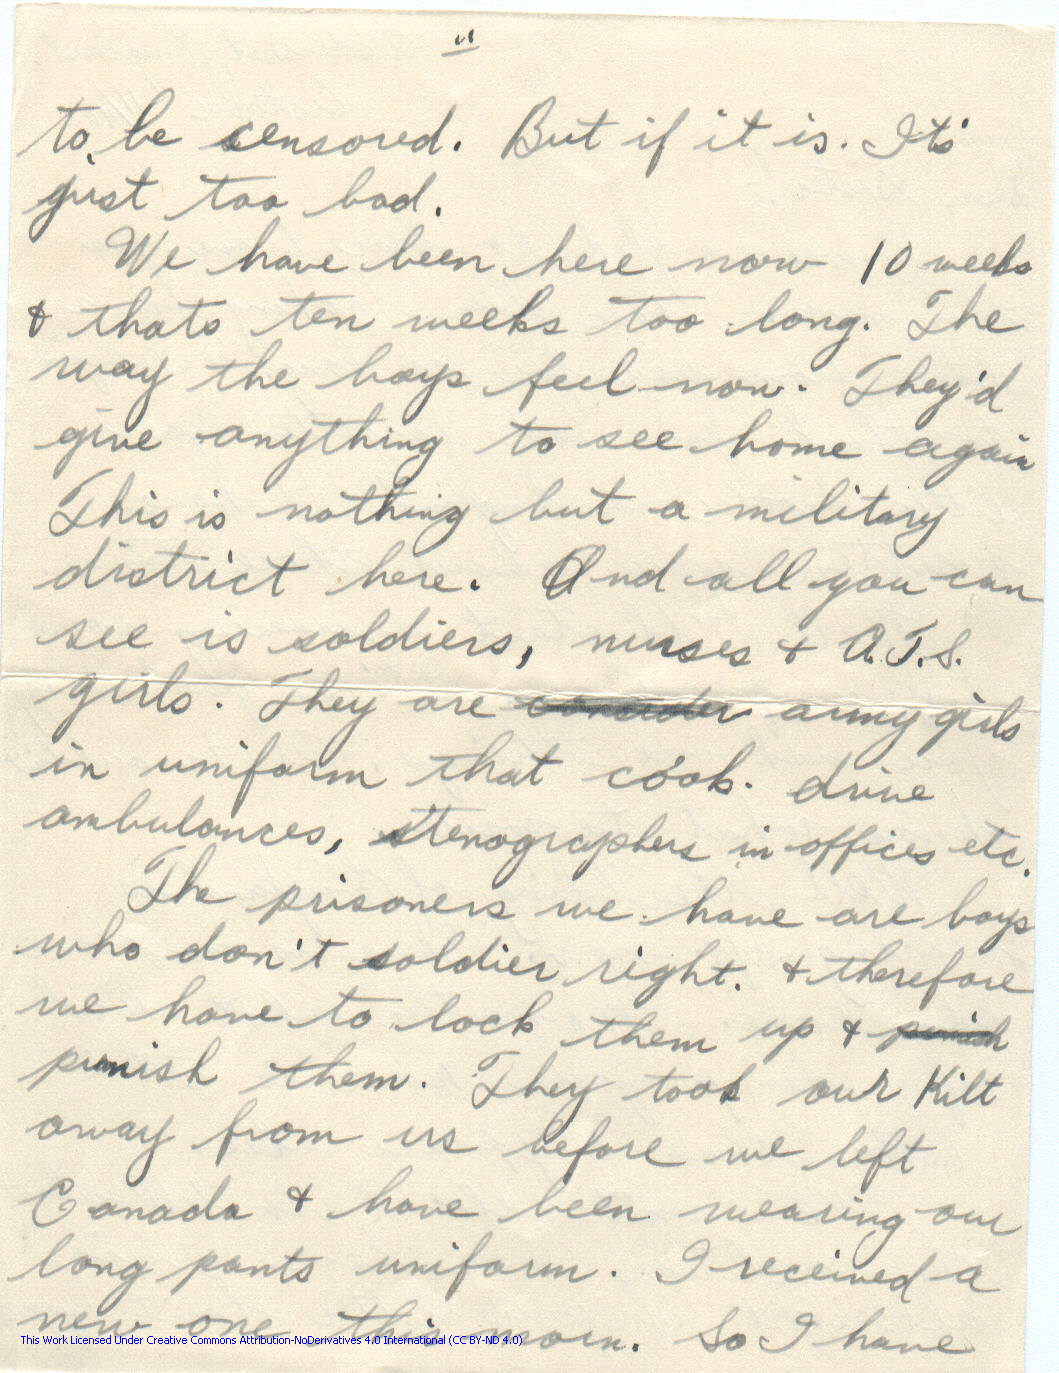 "
to be censored. But if it is. It's
just too bad.
We have been here now 10 weeks
& thats ten weeks too long. The
way the boys feel now. They'd
give anything to see home again
This is nothing but a military
district here. And all you can
see is soldiers, nurses & A.T.S.
girls. They are consider army girls
in uniform that cook. drive
ambulances, stenographers in offices etc.
The prisoners we have are boys
who don't soldier right. & therefore
we have to lock them up & punish
punish them. They took our Kilt
away from us before we left
Canada & have been wearing our
long pants uniform. I received a
new one this morn. So I have
This Work Licensed Under Creative Commons Attribution-NoDerivatives 4.0 International (CC BY-ND 4.0)